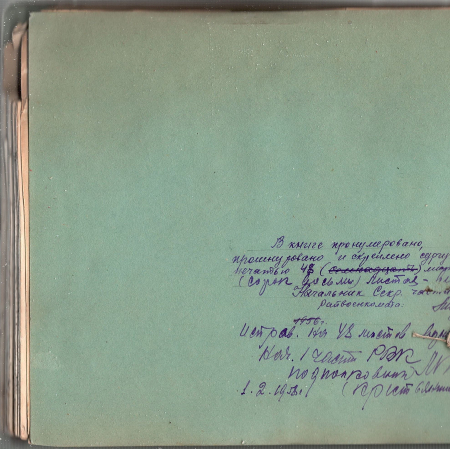 В книге пронумеровано,
прошнуровано и скреплено сургу
печатью 48 (восемнадцать)
(сорок восьми) листов -
Начальник Секр. части
Райвоенкомата
1956г.
Исправ. на 48 листов
Нач. 1 части РВК
подполковник
1.2.195